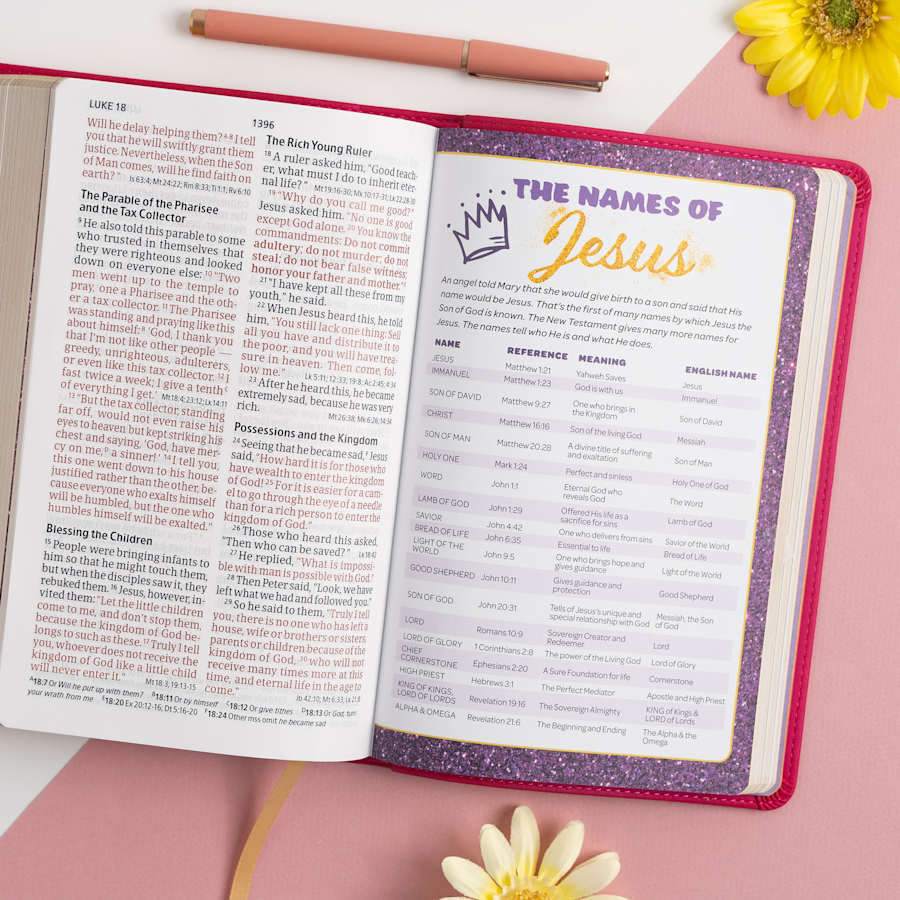 LUKE 18
1396
Will he delay helping them? I tell
you that he will swiftly grant them
justice. Nevertheless, when the Son
of Man comes, will he find faith on
earth?" Is 63:4; Mt 24:22; Rm 8:33; Ti 1:1; Rv 6:10
The Parable of the Pharisee
and the Tax Collector
9 He also told this parable to some
who trusted in themselves that
they were righteous and looked
down on everyone else: 10 "Two
men went up to the temple to
pray, one a Pharisee and the oth-
er a tax collector. 11 The Pharisee
was standing and praying like this
about himself: 'God, I thank you
that I'm not like other people —
greedy, unrighteous, adulterers,
or even like this tax collector. 12 I
fast twice a week; I give a tenth
of everything I get.' Mt 18:4; 23:12; Lk 14:11
13 "But the tax collector, standing
far off, would not even raise his
eyes to heaven but kept striking his
chest and saying, 'God, have mer-
cy on me, a sinner!' 14 I tell you,
this one went down to his house
justified rather than the other, be-
cause everyone who exalts himself
will be humbled, but the one who
humbles himself will be exalted."
Blessing the Children
15 People were bringing infants to
him so that he might touch them,
but when the disciples saw it, they
rebuked them. 16 Jesus, however, in-
vited them: "Let the little children
come to me, and don't stop them,
because the kingdom of God be-
longs to such as these. 17 Truly I tell
you, whoever does not receive the
kingdom of God like a little child
will never enter it." Mt 18:3; 19:13-15
The Rich Young Ruler
18 A ruler asked him, "Good teach-
er, what must I do to inherit eter-
nal life?" Mt 19:16-30; Mk 10:17-31; Lk 22,28,30
19 "Why do you call me good?"
Jesus asked him. "No one is good
except God alone. 20 You know the
commandments: Do not commit
adultery; do not murder; do not
steal; do not bear false witness;
honor your father and mother."
21 "I have kept all these from my
youth," he said.
22 When Jesus heard this, he told
him, "You still lack one thing: Sell
all you have and distribute it to
the poor, and you will have trea-
sure in heaven. Then come, fol-
low me." Lk 5:11; 12:33; 19:8; Ac 2:45; 4:34
23 After he heard this, he became
extremely sad, because he was very
rich. Mt 26:38; Mk 6:26; 14:34
Possessions and the Kingdom
24 Seeing that he became sad, Jesus
said, "How hard it is for those who
have wealth to enter the kingdom
of God! 25 For it is easier for a cam-
el to go through the eye of a needle
than for a rich person to enter the
kingdom of God."
26 Those who heard this asked,
"Then who can be saved?" Lk 18:42
27 He replied, "What is impossi-
ble with man is possible with God."
28 Then Peter said, "Look, we have
left what we had and followed you."
29 So he said to them, "Truly I tell
you, there is no one who has left a
house, wife or brothers or sisters,
parents or children because of the
kingdom of God, 30 who will not
receive many times more at this
time, and eternal life in the age to
come." Jb 42:10; Mt 6:33; Lk 21:8
A 18:7 Or Will he put up with them? B 18:11 Or by himself C 18:12 Or give tithes D 18:13 Or God, turn
your wrath from me E 18:20 Ex 20:12-16; Dt 5:16-20 F 18:24 Other mss omit he became sad
THE NAMES OF
Jesus
An angel told Mary that she would give birth to a son and said that His
name would be Jesus. That's the first of many names by which Jesus the
Son of God is known. The New Testament gives many more names for
Jesus. The names tell who He is and what He does.
NAME REFERENCE MEANING ENGLISH NAME
JESUS Matthew 1:21 Yahweh Saves Jesus
IMMANUEL Matthew 1:23 God is with us Immanuel
SON OF DAVID Matthew 9:27 One who brings in
the Kingdom Son of David
CHRIST Matthew 16:16 Son of the living God Messiah
SON OF MAN Matthew 20:28 A divine title of suffering
and exaltation Son of Man
HOLY ONE Mark 1:24 Perfect and sinless Holy One of God
WORD John 1:1 Eternal God who
reveals God The Word
LAMB OF GOD John 1:29 Offered His life as a
sacrifice for sins Lamb of God
SAVIOR John 4:42 One who delivers from sins Savior of the World
BREAD OF LIFE John 6:35 Essential to life Bread of Life
LIGHT OF THE
WORLD John 9:5 One who brings hope and
gives guidance Light of the World
GOOD SHEPHERD John 10:11 Gives guidance and
protection Good Shepherd
SON OF GOD John 20:31 Tells of Jesus's unique and
special relationship with God Messiah, the Son
of God
LORD Romans 10:9 Sovereign Creator and
Redeemer Lord
LORD OF GLORY 1 Corinthians 2:8 The power of the Living God Lord of Glory
CHIEF
CORNERSTONE Ephesians 2:20 A Sure Foundation for life Cornerstone
HIGH PRIEST Hebrews 3:1 The Perfect Mediator Apostle and High Priest
KING OF KINGS,
LORD OF LORDS Revelation 19:16 The Sovereign Almighty KING of Kings &
LORD of Lords
ALPHA & OMEGA Revelation 21:6 The Beginning and Ending The Alpha & the
Omega